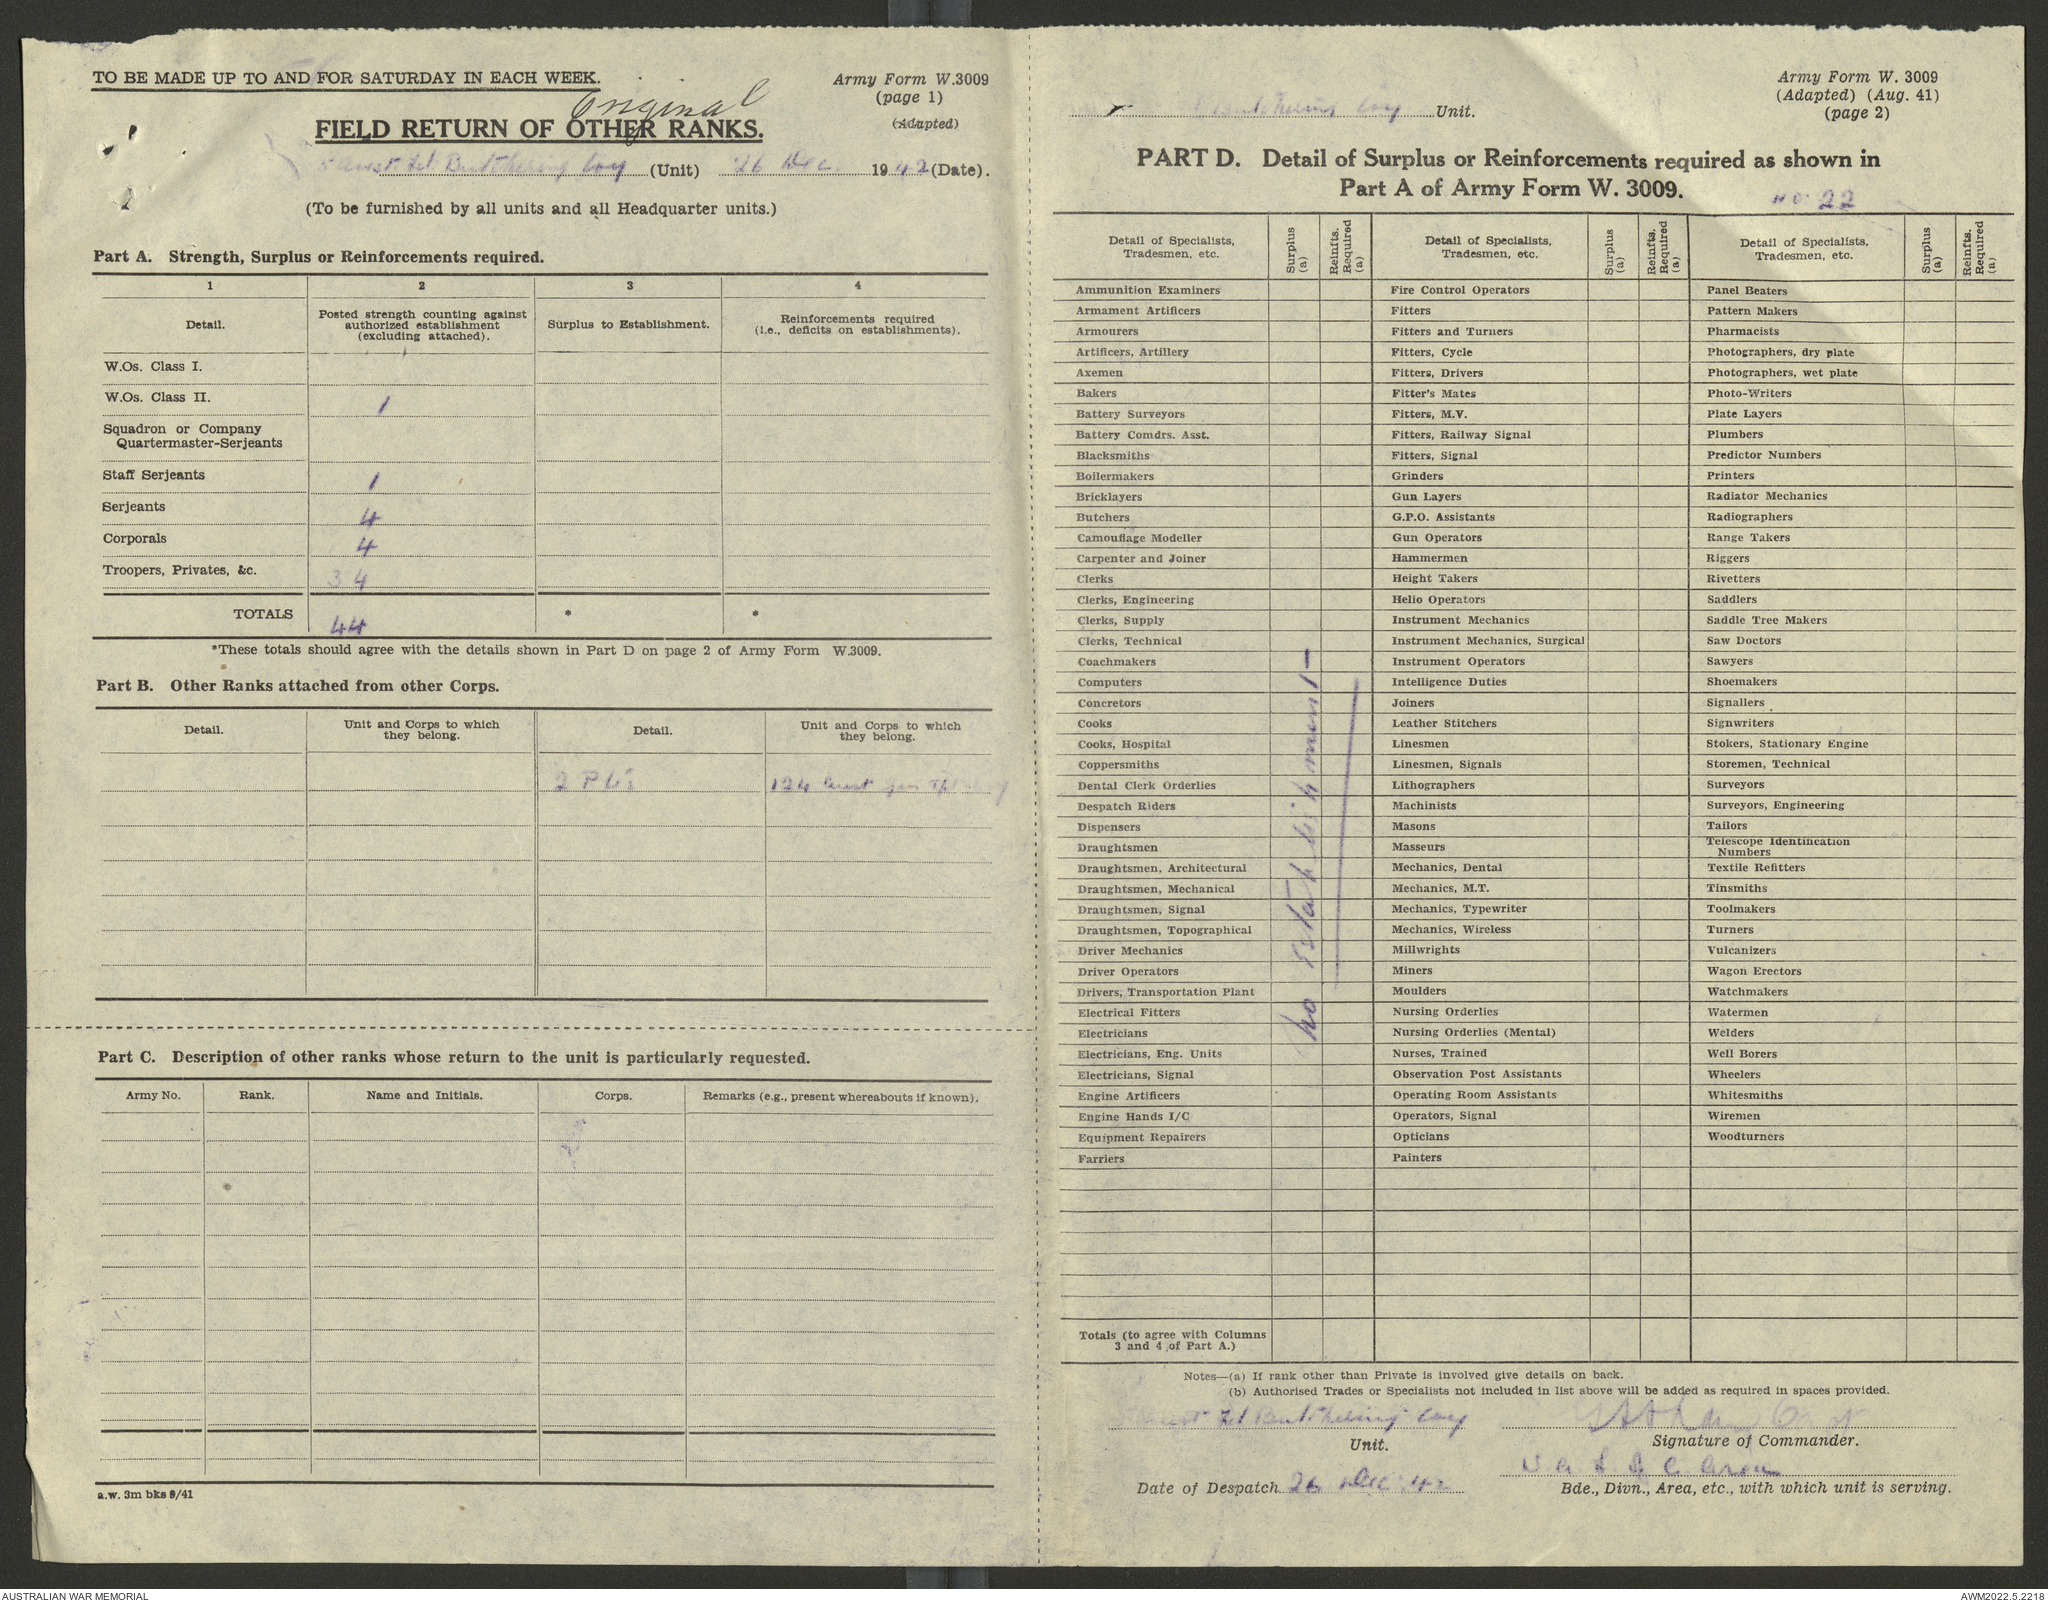 TO BE MADE UP TO AND FOR SATURDAY IN EACH WEEK.
Army Form W.3009
(page 1)
(Adapted)
Original
FIELD RETURN OF OTHER RANKS.
5 Aust Fd Butchering Coy (Unit) 26 Dec. 1942 (Date).
(To be furnished by all units and all Headquarter units.)
Part A. Strength, Surplus or Reinforcements required.
1 2 3 4
Detail. Posted strength counting against authorized establishment (excluding attached). Surplus to Establishment. Reinforcements required (i.e., deficits on establishments).
W.Os. Class I.
W.Os. Class II. 1
Squadron or Company
Quartermaster-Serjeants
Staff Serjeants 1
Serjeants 4
Corporals 4
Troopers, Privates, &c. 34
TOTALS 44 * *
*These totals should agree with the details shown in Part D on page 2 of Army Form W.3009.
Part B. Other Ranks attached from other Corps.
Detail. Unit and Corps to which they belong. Detail. Unit and Corps to which they belong.
2 Pts 124 Aust Gen Tpt Coy
Part C. Description of other ranks whose return to the unit is particularly requested.
Army No. Rank. Name and Initials. Corps. Remarks (e.g., present whereabouts if known).
a.w. 3m bks 9/41
Butchering Coy Unit.
Army Form W. 3009
(Adapted) (Aug. 41)
(page 2)
PART D. Detail of Surplus or Reinforcements required as shown in
Part A of Army Form W. 3009.
No 22
Detail of Specialists, Tradesmen, etc. Surplus (a) Reinfts. Required (a) Detail of Specialists, Tradesmen, etc. Surplus (a) Reinfts. Required (a) Detail of Specialists, Tradesmen, etc. Surplus (a) Reinfts. Required (a)
Ammunition Examiners Fire Control Operators Panel Beaters
Armament Artificers Fitters Pattern Makers
Armourers Fitters and Turners Pharmacists
Artificers, Artillery Fitters, Cycle Photographers, dry plate
Axemen Fitters, Drivers Photographers, wet plate
Bakers Fitter's Mates Photo-Writers
Battery Surveyors Fitters, M.V. Plate Layers
Battery Comdrs. Asst. Fitters, Railway Signal Plumbers
Blacksmiths Fitters, Signal Predictor Numbers
Boilermakers Grinders Printers
Bricklayers Gun Layers Radiator Mechanics
Butchers G.P.O. Assistants Radiographers
Camouflage Modeller Gun Operators Range Takers
Carpenter and Joiner Hammermen Riggers
Clerks Height Takers Rivetters
Clerks, Engineering Helio Operators Saddlers
Clerks, Supply Instrument Mechanics Saddle Tree Makers
Clerks, Technical Instrument Mechanics, Surgical Saw Doctors
Coachmakers Instrument Operators Sawyers
Computers Intelligence Duties Shoemakers
Concretors Joiners Signallers
Cooks Leather Stitchers Signwriters
Cooks, Hospital Linesmen Stokers, Stationary Engine
Coppersmiths Linesmen, Signals Storemen, Technical
Dental Clerk Orderlies Lithographers Surveyors
Despatch Riders Machinists Surveyors, Engineering
Dispensers Masons Tailors
Draughtsmen Masseurs Telescope Identification Numbers
Draughtsmen, Architectural Mechanics, Dental Textile Refitters
Draughtsmen, Mechanical Mechanics, M.T. Tinsmiths
Draughtsmen, Signal Mechanics, Typewriter Toolmakers
Draughtsmen, Topographical Mechanics, Wireless Turners
Driver Mechanics Millwrights Vulcanizers
Driver Operators Miners Wagon Erectors
Drivers, Transportation Plant Moulders Watchmakers
Electrical Fitters Nursing Orderlies Watermen
Electricians Nursing Orderlies (Mental) Welders
Electricians, Eng. Units Nurses, Trained Well Borers
Electricians, Signal Observation Post Assistants Wheelers
Engine Artificers Operating Room Assistants Whitesmiths
Engine Hands I/C Operators, Signal Wiremen
Equipment Repairers Opticians Woodturners
Farriers Painters
No Establishment -
Totals (to agree with Columns
3 and 4 of Part A.)
Notes—(a) If rank other than Private is involved give details on back.
(b) Authorised Trades or Specialists not included in list above will be added as required in spaces provided.
Aust Fd Butchering Coy
Unit.
Signature of Commander.
Date of Despatch 26 Dec 42
Bde., Divn., Area, etc., with which unit is serving.
AUSTRALIAN WAR MEMORIAL
AWM2022.5.2218